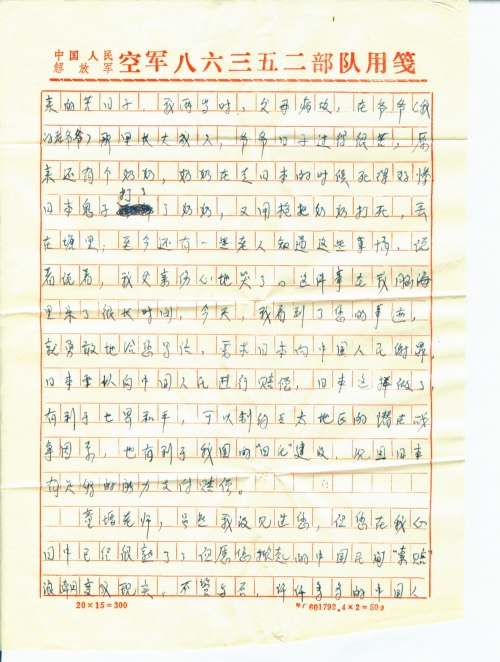 中国人民
解放军 空军八六三五二部队用笺
来的苦日子，我两岁时，父母病故，在爷爷（我
爷爷）那里长大成人，爷爷日子过得很苦，原
来还有个奶奶，奶奶在走日本的时候死得好惨
打了
日本鬼子了奶奶，又用枪把奶奶打死，丢
在塘里，至今还有一些老人知道这些事情，说
着说着，我父亲伤心地哭了。这件事在我脑海
里呆了很长时间，今天，我看到了您的事迹，
就勇敢地给您写信，要求日本向中国人民谢罪，
日本要以向中国人民进行赔偿，日本这样做了，
有利于世界和平，可以制约亚太地区的潜在战
争因素，也有利于我国的“四化”建设，况且日本
有足够的能力支付赔偿。
童增老师，虽然我没见过您，但您在我心
目中已经很熟了，但愿您掀起的中国民间“索赔”
浪潮变成现实，不管与否，许许多多的中国人
20×15=300
601792.4×2=500